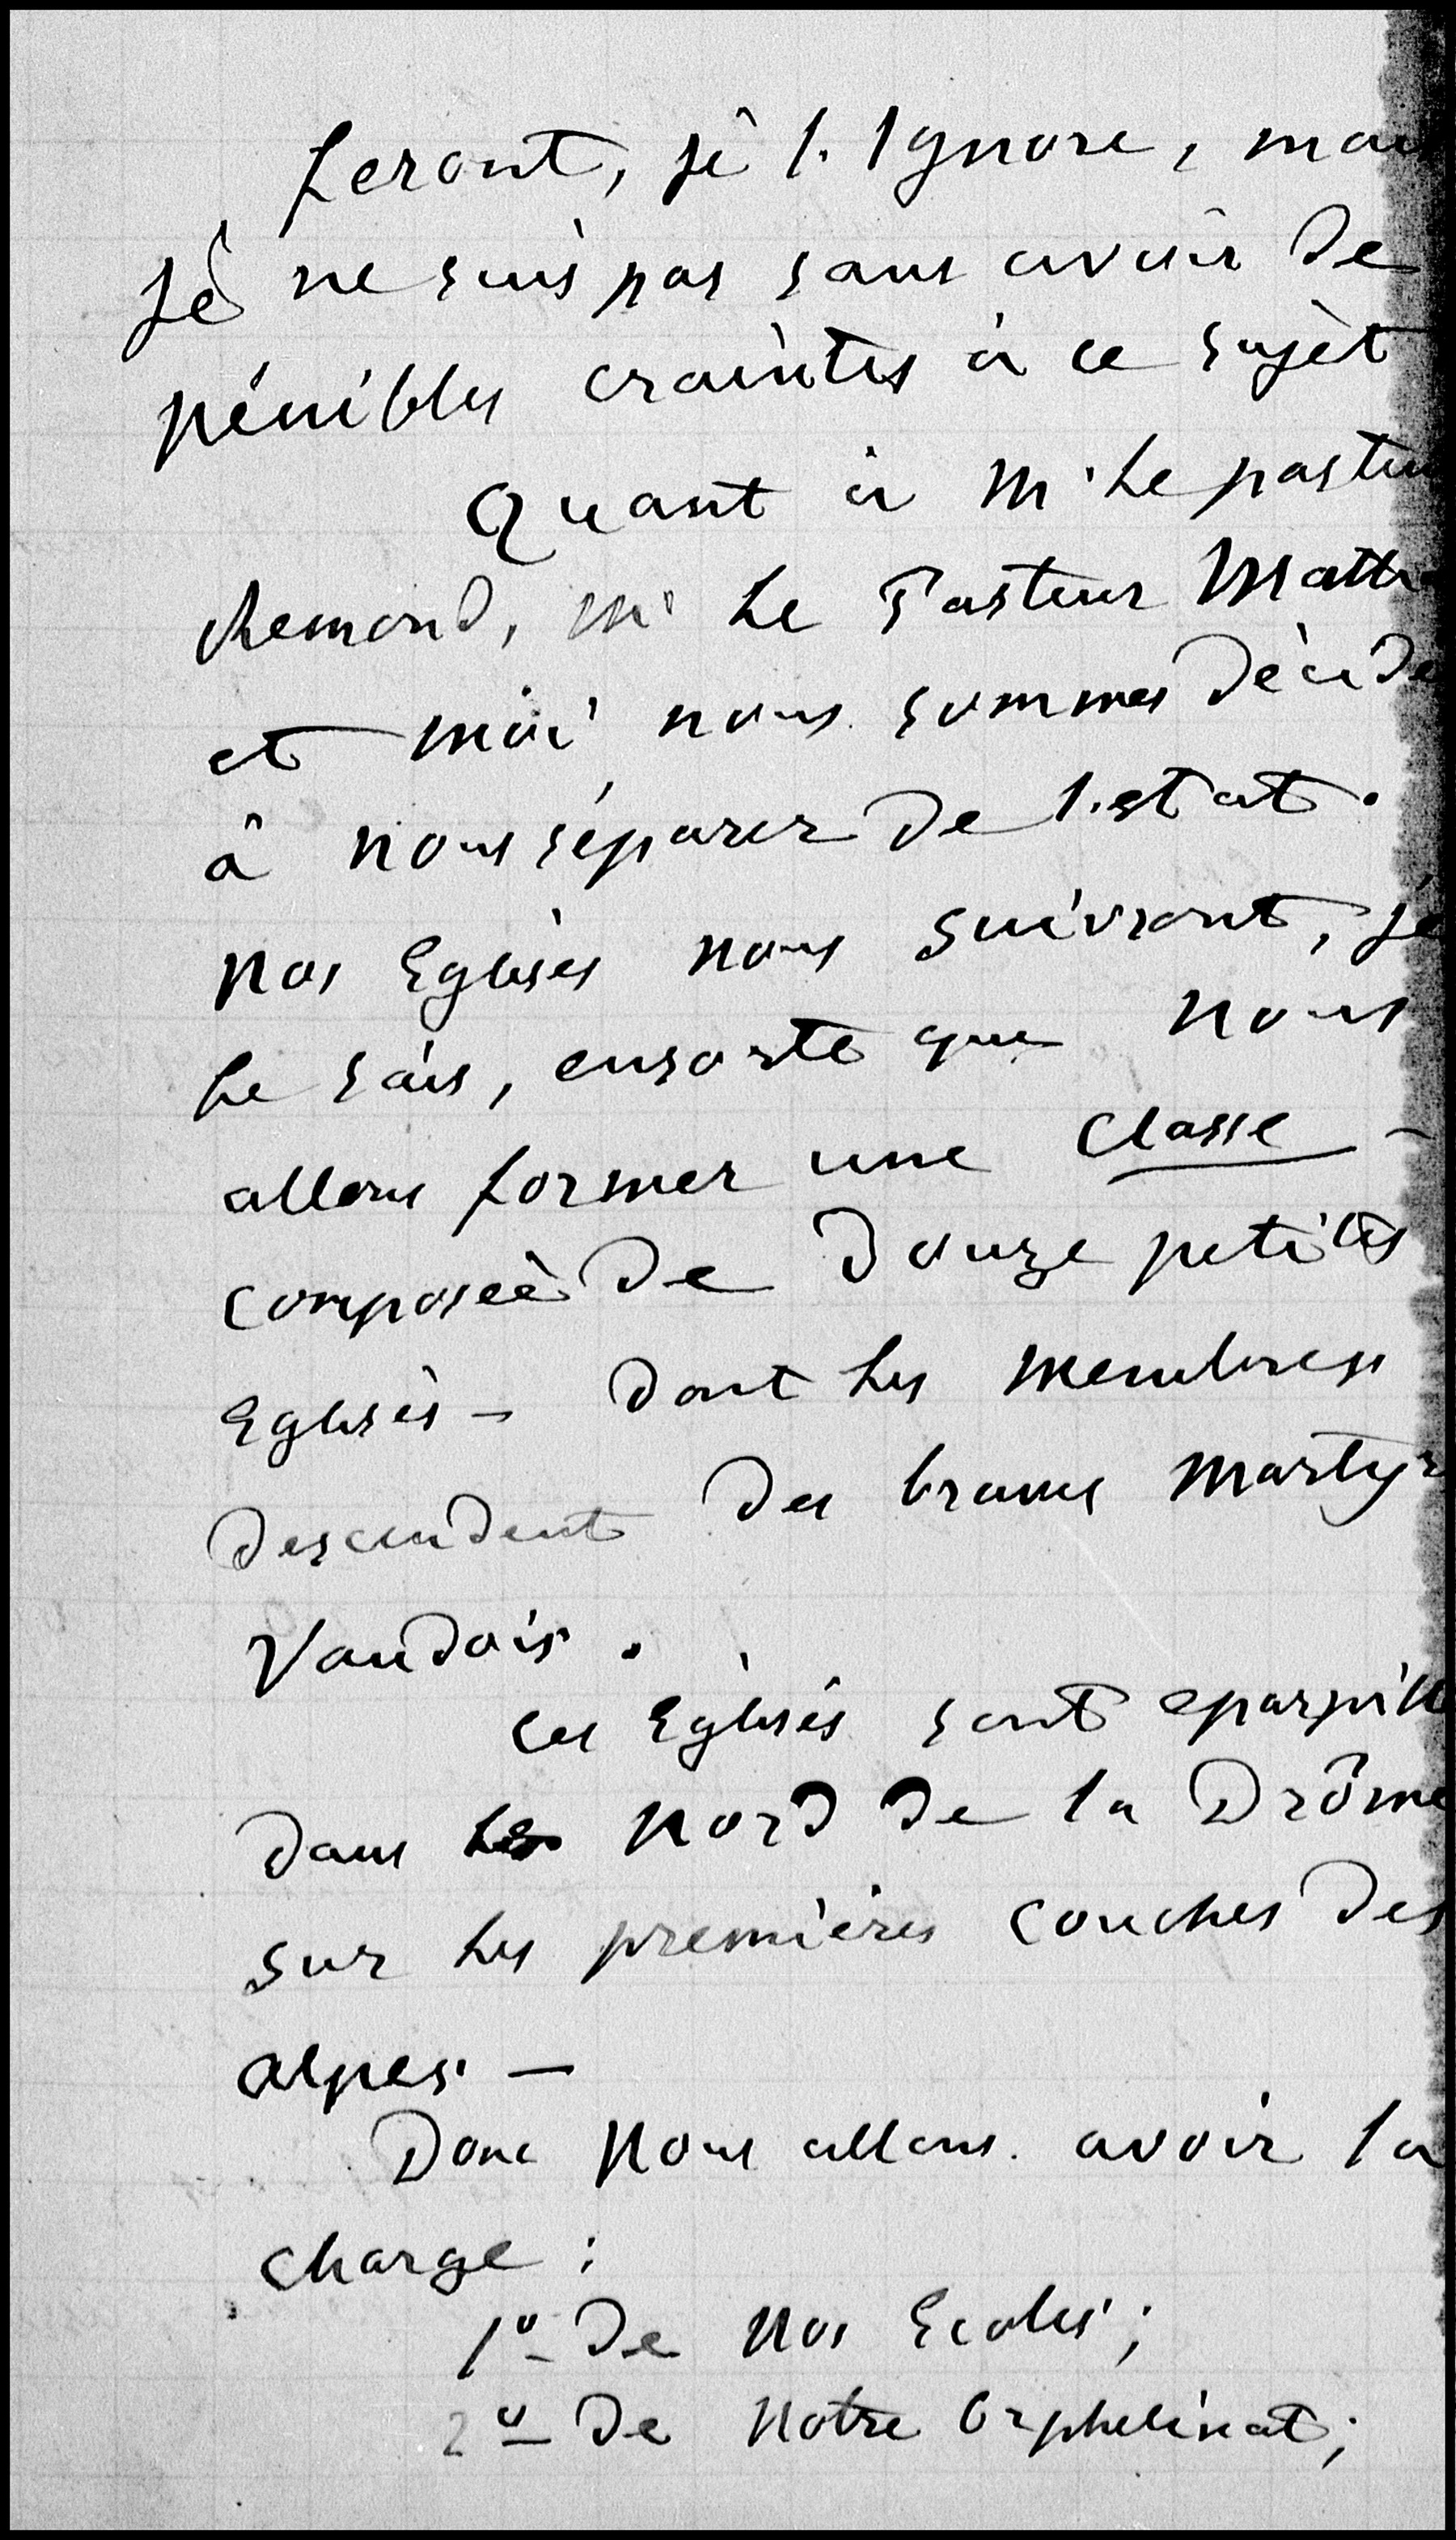 feront, je l'Ignore, mais
je ne suis pas sans avoir de
pénibles craintes à ce sujèt
Quant à Mr Le pasteur
Remond, Mr Le Pasteur
et moi nous sommes décidé
à nous séparer de l'état.
Nos Eglises nous suivront, je
Le sais, ensorte que nous
allons former une Classe -
composée de Douze petites
Eglises - dont Les membres
descendent des braves Martyrs
Vaudois.
Ces Eglises sont eparpill
dans Le Nord de la Drôme
sur Les premières couches des
alpes -
Donc Nous allons avoir la
charge :
1o De Nos Ecoles ;
2o De Notre Orphelinat ;